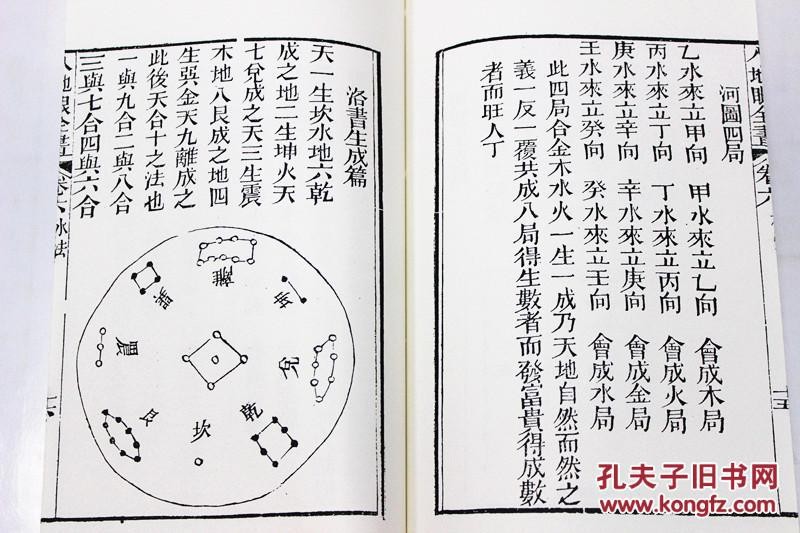 河圖四局
乙水來立甲向　甲水來立乙向　會成木局
丙水來立丁向　丁水來立丙向　會成火局
庚水來立辛向　辛水來立庚向　會成金局
壬水來立癸向　癸水來立壬向　會成水局
此四局合金木水火一生一成乃天地自然而然之
義一反一覆共成八局得生數者而發富貴得成數
者而旺人丁
洛書生成篇
天一生坎水地六乾
成之地二生坤火天
七兌成之天三生震
木地八艮成之地四
生巽金天九離成之
此後天合十之法也
一與九合二與八合
三與七合四與六合
離
坤
兌
乾
坎
艮
震
巽
人地眼全書
卷六
十五
人地眼全書
卷六
水法
十六
孔夫子旧书网
www.kongfz.com